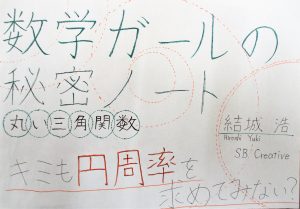 数学ガールの
秘密ノート
丸い三角関数
結城 浩
Hiroshi Yuki
SB Creative
キミも円周率を
求めてみない?